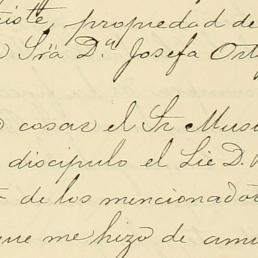 existe, propiedad de
Sra Dª Josefa Ort
cosas el Sr Musi
discipulo el Lic D.
de los mencionados
que me hizo de amis